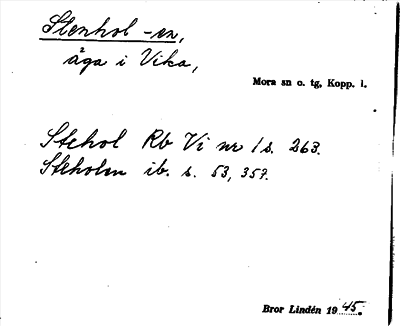 Stenhol -en,
åga i Vika,
Mora sn o. tg, Kopp. l.
Stehol Rb Vi nr 1 s. 263.
Steholen ib. s. 53, 357.
Bror Lindén 1945.